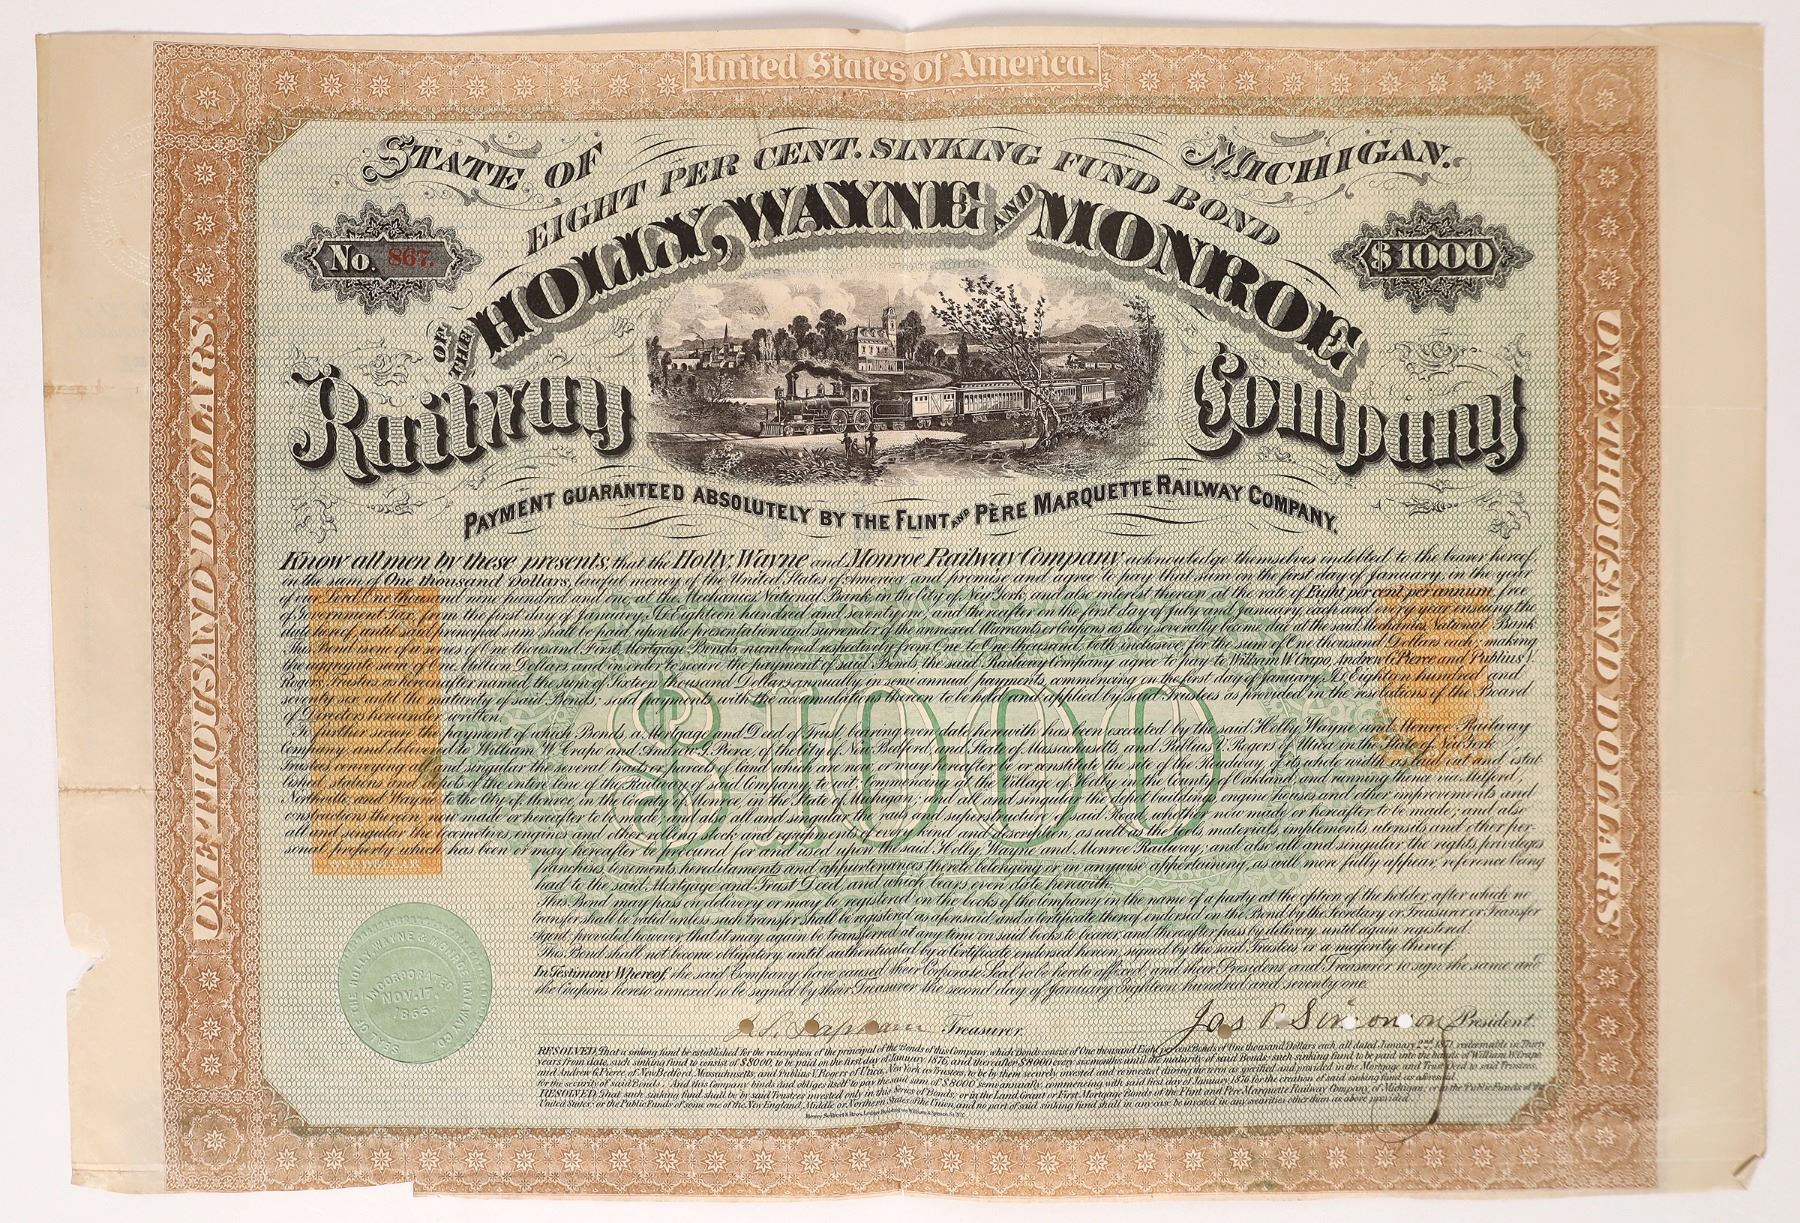 United States of America.
STATE OF MICHIGAN.
EIGHT PER CENT. SINKING FUND BOND
No. 867.
$1000
OF THE HOLLY, WAYNE AND MONROE
Railway Company
PAYMENT GUARANTEED ABSOLUTELY BY THE FLINT AND PÈRE MARQUETTE RAILWAY COMPANY.
ONE THOUSAND DOLLARS.
ONE THOUSAND DOLLARS.
Know all men by these presents, that the Holly, Wayne and Monroe Railway Company acknowledge themselves indebted to the bearer hereof,
in the sum of One thousand Dollars, lawful money of the United States of America and promise and agree to pay that sum on the first day of January, in the year
of our Lord One thousand nine hundred and one, at the Mechanics National Bank, in the City of New York and also interest thereon at the rate of Eight per cent, per annum, free
of Government Tax, from the first day of January, A.D. Eighteen hundred and seventy one, and thereafter on the first day of July and January, each and every year ensuing the
date hereof, until said principal sum shall be paid, upon the presentation and surrender of the annexed Warrants or Coupons as they severally become due at the said Mechanics National Bank
This Bond is one of a series of One thousand First Mortgage Bonds, numbered respectively from One to One thousand, both inclusive for the sum of One thousand Dollars each, making
the aggregate sum of One Million Dollars and in order to secure the payment of said Bonds the said Railway Company agree to pay to William W. Crapo, Andrew G. Pierce and Publius V.
Rogers, Trustees as hereinafter named, the sum of Sixteen thousand Dollars annually, in semi annual payments, commencing on the first day of January, A.D. Eighteen hundred and
seventy six, until the maturity of said Bonds; said payments, with the accumulation thereon to be held and applied by said Trustees as provided in the resolutions of the Board
of Directors hereunder written.
To further secure the payment of which Bonds, a Mortgage and Deed of Trust, bearing even date herewith has been executed by the said Holly, Wayne and Monroe Railway
Company and delivered to William W. Crapo and Andrew G. Pierce, of the City of New Bedford, and State of Massachusetts, and Publius V. Rogers of Utica, in the State of New York
Trustees conveying all and singular the several tracts or parcels of land which are now or may hereafter be or constitute the site of the Railway of its whole width as laid out and estab-
lished, stations and slots of the entire line of the Railway of said Company, to wit, Commencing at the Village of Holly in the County of Oakland, and running thence via Milford,
Northville, and Wayne to the City of Monroe, in the County of Monroe, in the State of Michigan; and all and singular the depot buildings, engine houses, and other improvements and
constructions therein now made or hereafter to be made, and also all and singular the rails and superstructure of said Road, whether now made or hereafter to be made; and also
all and singular the locomotives, engines and other rolling stock and equipments of every kind and description, as well as the tools, materials, implements, utensils and other per-
sonal property which has been or may hereafter be procured for and used upon the said Holly, Wayne and Monroe Railway; and also all and singular the rights, privileges
franchises, tenements, hereditaments and appurtenances thereto belonging or in anywise appertaining, as will more fully appear, reference being
had to the said Mortgage and Trust Deed, and which bears even date herewith.
This Bond may pass on delivery or may be registered on the books of the Company in the name of a party at the option of the holder, after which no
transfer shall be valid unless such transfer shall be registered as aforesaid and a certificate thereof endorsed on the Bond by the Secretary or Treasurer or Transfer
Agent; provided however, that it may again be transferred at any time on said books to bearer and thereafter pass by delivery, until again registered.
This Bond shall not become obligatory, until authenticated by a Certificate endorsed hereon, signed by the said Trustees or a majority thereof.
In Testimony Whereof, the said Company have caused their Corporate Seal to be hereto affixed, and their President and Treasurer to sign the same and
the Coupons hereto annexed to be signed by their Treasurer the second day of January Eighteen hundred and seventy one.
$1000
SEAL OF THE HOLLY, WAYNE & MONROE RAILWAY CO.
INCORPORATED
NOV. 17.
1865.
Treasurer.
Jas. P. Simonson President.
RESOLVED, That a sinking fund be established for the redemption of the principal of the Bonds of this Company, which Bonds consist of One thousand Eight per cent Bonds of One thousand Dollars each, all dated January 2nd 1871, redeemable in Thirty
years from date, such sinking fund to consist of $8000, to be paid on the first day of January 1876, and thereafter $8000 every six months until the maturity of said Bonds; such sinking fund to be paid into the hands of William W. Crapo
and Andrew G. Pierce, of New Bedford, Massachusetts, and Publius V. Rogers of Utica, New York as Trustees, to be by them securely invested and reinvested during the term as specified and provided in the Mortgage and Trust Deed to said Trustees,
for the security of said Bonds. And this Company binds and obliges itself to pay the said sum of $8000 semi annually, commencing with said first day of January, 1876 for the creation of said sinking fund as aforesaid.
RESOLVED, That such sinking fund shall be by said Trustees invested only in this Series of Bonds; or in the Land Grant or First Mortgage Bonds of the Flint and Père Marquette Railway Company, of Michigan; or in the Public Funds of the
United States; or the Public Funds of some one of the New England, Middle, or Northern States of the Union, and no part of said sinking fund shall in any case be invested in any securities other than as above provided.